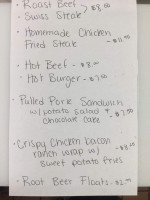 · Roast Beef
$8.00
· Swiss Steak
· Homemade Chicken
Fried Steak
· Hot Beef - $8.00
· Hot Burger - $7.00
· Pulled Pork Sandwich
w/ potato salad +
chocolate cake
- $7.50
· Crispy Chicken bacon
ranch wrap w/
sweet potato fries
· Root Beer Floats - $2.00